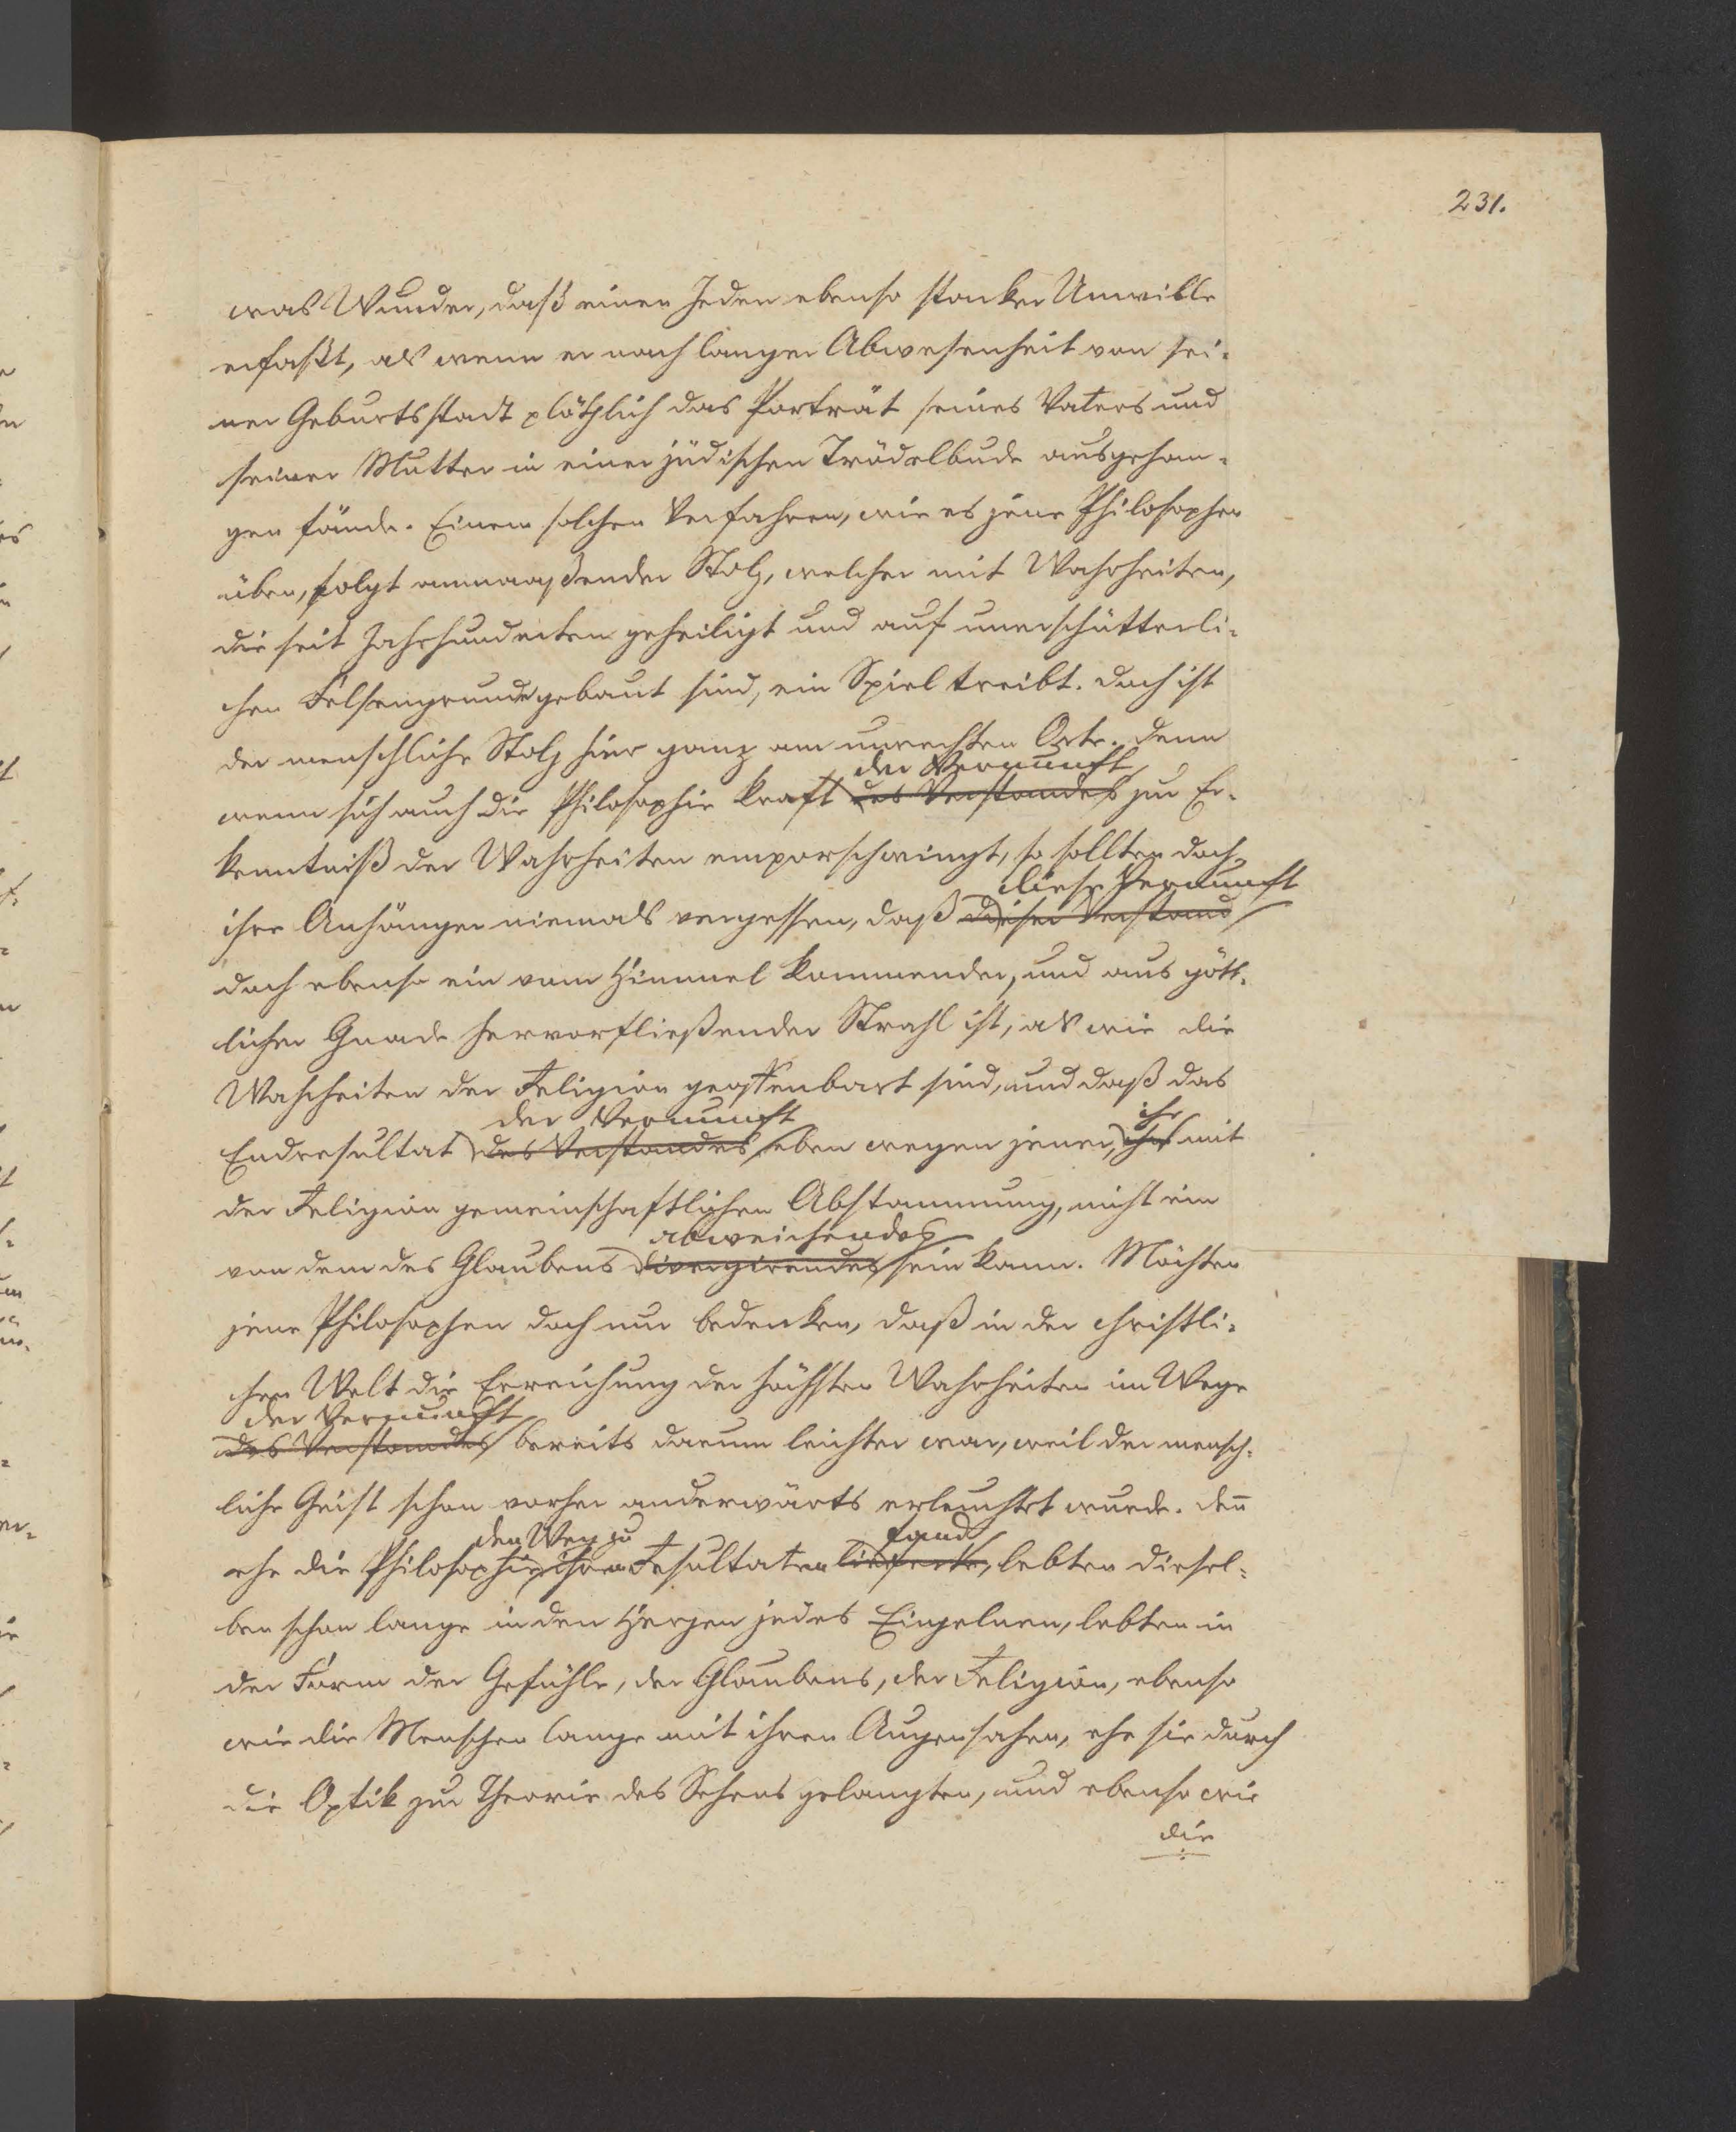 231.
was Wunder, daß einen Jeden ebenso starker Unwille
erfaßt, als wenn er nach langer Abwesenheit von sei-
ner Geburtsstadt plötzlich das Porträt seines Vaters und
seiner Mutter in einer jüdischen Trödelbude ausgehan-
gen fände. Einem solchen Verfahren, wie es jene Philosophen
üben, folgt anmaaßender Stolz, welcher mit Wahrheiten,
die seit Jahrhunderten geheiligt und auf unerschütterli-
chen Felsengrunde gebaut sind, ein Spiel treibt. Doch ist
der menschliche Stolz hier ganz am unrechten Orte. Denn
der Vernunft
wenn sich auch die Philosophie kraft des Verstandes zur Er-
kenntniß der Wahrheiten emporschwingt, so sollten doch
diese Vernunft
ihre Anhänger niemals vergessen, daß dieser Verstand
doch ebenso ein vom Himmel kommender, und aus gött-
licher Gnade hervorfließender Strahl ist, als wie die
Wahrheiten der Religion geoffenbart sind, und daß das
der Vernunft ihr
Endresultat des Verstandes eben wegen jener, ihm mit
der Religion gemeinschaftlichen Abstammung, nicht ein
abweichendes
von dem des Glaubens divergirendes sein kann. Möchten
jene Philosophen doch nur bedenken, daß in der christli-
chen Welt die Erreichung der höchsten Wahrheiten im Wege
der Vernunft
des Verstandes bereits darum leichter war, weil der mensch-
liche Geist schon vorher anderwärts erleuchtet wurde. Den̄
den Weg zu fand
ehe die Philosophie ihren Resultaten lieferte, lebten diesel-
ben schon lange in den Herzen jedes Einzelnen, lebten in
der Form der Gefühle, des Glaubens, der Religion, ebenso
wie die Menschen lange mit ihren Augen sahen, ehe sie durch
die Optik zur Theorie des Sehens gelangten, und ebenso wie
die